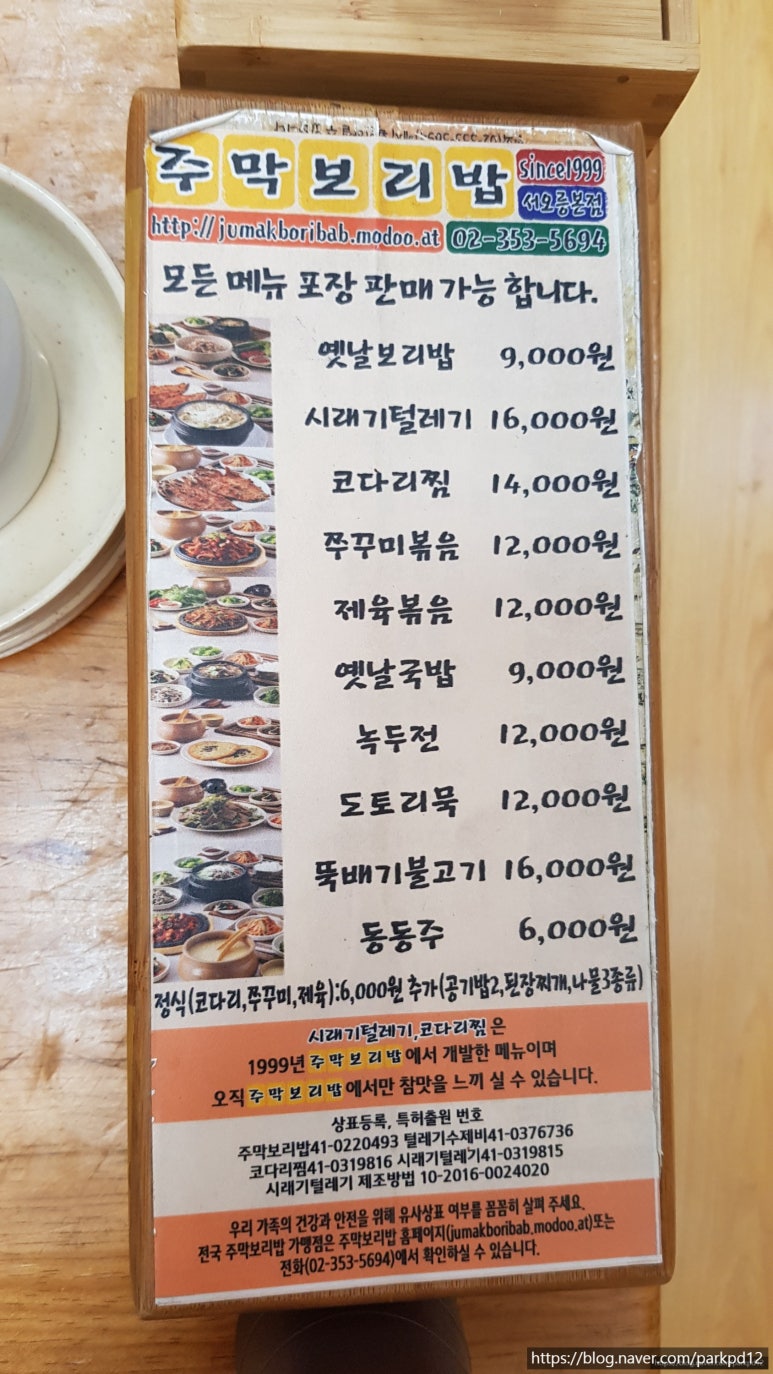 주막보리밥 since1999
서오릉본점
http://jumakboribab.modoo.at 02-353-5694
모든 메뉴 포장 판매 가능 합니다.
옛날보리밥 9,000원
시래기털레기 16,000원
코다리찜 14,000원
쭈꾸미볶음 12,000원
제육볶음 12,000원
옛날국밥 9,000원
녹두전 12,000원
도토리묵 12,000원
뚝배기불고기 16,000원
동동주 6,000원
정식(코다리,쭈꾸미,제육):6,000원 추가(공기밥2,된장찌개,나물3종류)
시래기털레기,코다리찜은
1999년 주막보리밥에서 개발한 메뉴이며
오직 주막보리밥에서만 참맛을 느끼 실 수 있습니다.
상표등록, 특허출원 번호
주막보리밥41-0220493 털레기수제비41-0376736
코다리찜41-0319816 시래기털레기41-0319815
시래기털레기 제조방법 10-2016-0024020
우리 가족의 건강과 안전을 위해 유사상표 여부를 꼼꼼히 살펴 주세요.
전국 주막보리밥 가맹점은 주막보리밥 홈페이지(jumakboribab.modoo.at)또는
전화(02-353-5694)에서 확인하실 수 있습니다.
https://blog.naver.com/parkpd12